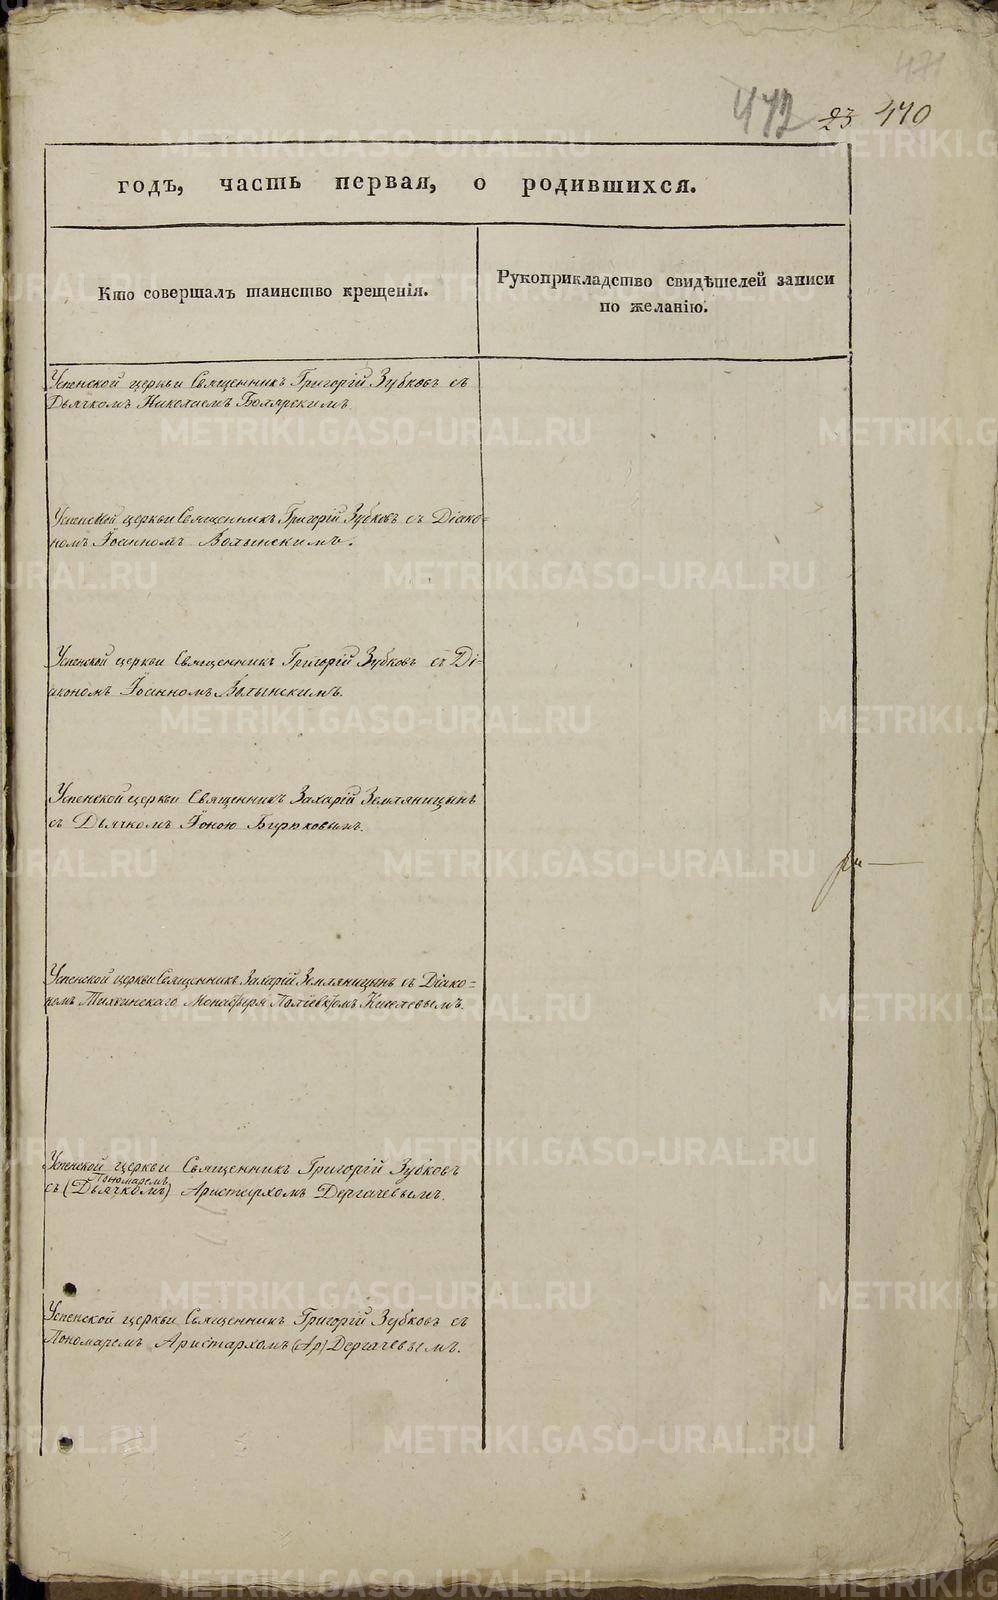 471
472 23 470
годъ, часть первая, о родившихся.
Кто совершалъ таинство крещенія.
Рукоприкладство свидѣтелей записи
по желанію.
Успенской церкви Священникъ Григорій Зубковъ съ
Дьячкомъ Николаемъ Боярскимъ.
Успенской церкви Священникъ Григорій Зубковъ съ Діако=
номъ Іоанномъ Волынскимъ.
Успенской церкви Священникъ Григорій Зубковъ съ Ді-
акономъ Іоанномъ Волынскимъ.
Успенской церкви Священникъ Захарій Земляницынъ
съ Дьячкомъ Іоною Бирюковымъ.
Успенской церкви Священникъ Захарій Земляницынъ съ Діако=
номъ Монастыря
Успенской церкви Священникъ Григорій Зубковъ
Пономаремъ
съ (Дьячкомъ) Аристархомъ Дергачевымъ.
Успенской церкви Священникъ Григорій Зубковъ съ
Пономаремъ Аристархомъ (Ар) Дергачевымъ.
METRIKI.GASO-URAL.RU